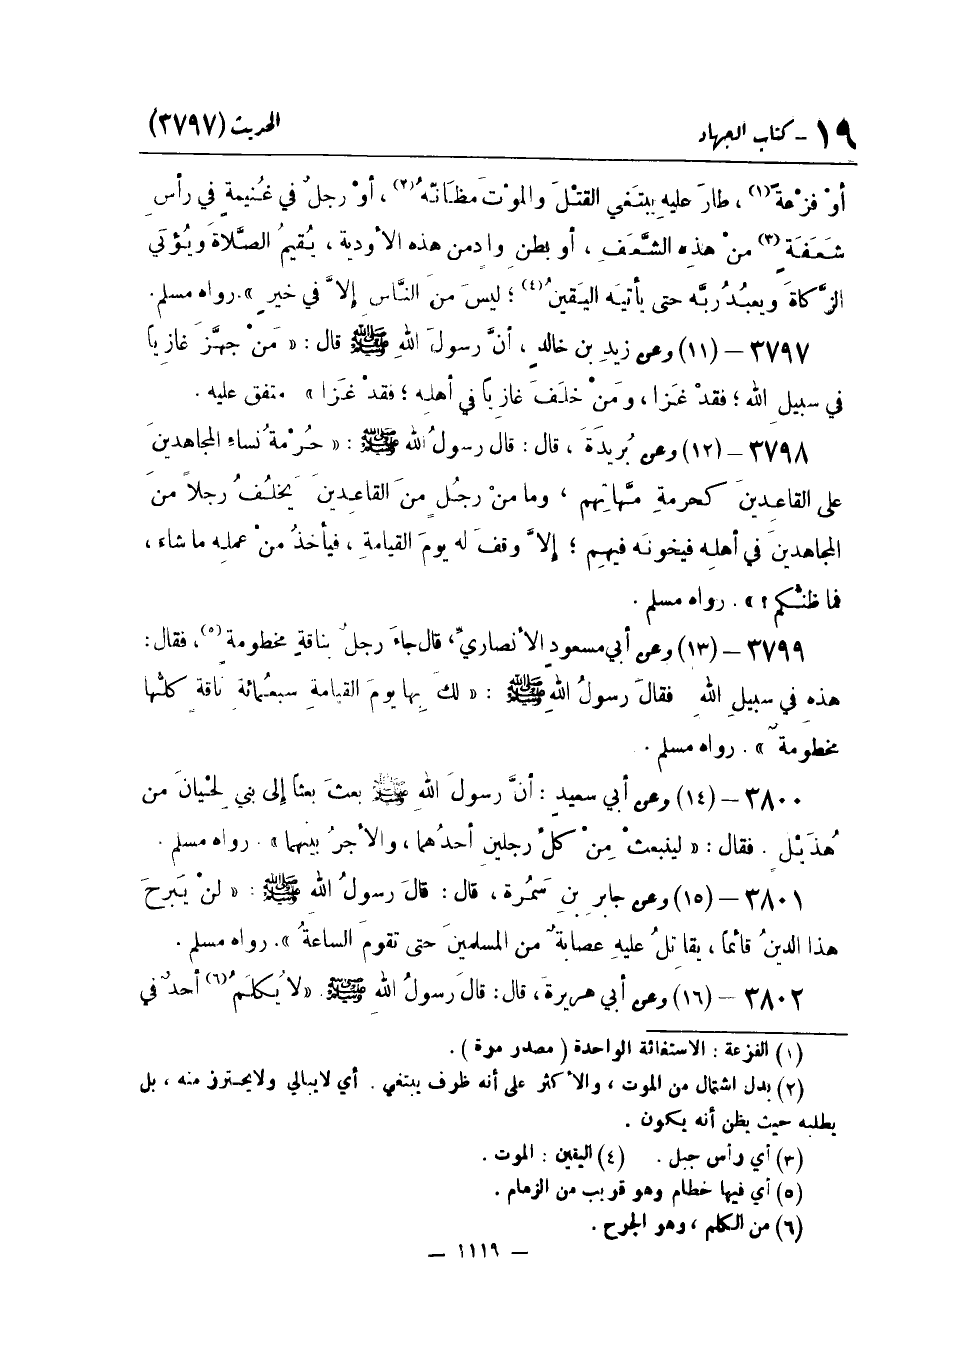 ١٩ – كتاب الجهاد الحديث (٣٧٩٧)
أوْ فزْعةً(١) ، طارَ عليهِ يبتَغي القتْلَ والموْتَ مظانَّهُ(٢) ، أوْ رجلٌ في غُنيمةٍ في رأسِ
شَعَفَةٍ(٣) منْ هذهِ الشَّعَفِ ، أو بطنِ وادٍ من هذه الأوديةِ ، يُقيمُ الصَّلاةَ ويُؤتي
الزَّكاةَ ويعبُدُ ربَّه حتى يأتيَه اليَقينُ(٤) ؛ ليسَ منَ النَّاسِ إلاَّ في خيرٍ » . رواه مسلم .
٣٧٩٧ – (١١) وعن زيدِ بنِ خالدٍ ، أنَّ رسولَ اللهِ ﷺ قال : « مَنْ جهَّزَ غازياً
في سبيلِ الله ؛ فقدْ غَزا ، ومَنْ خلَفَ غازياً في أهلِه ؛ فقدْ غَزا » متفق عليه .
٣٧٩٨ – (١٢) وعن بُريدَةَ ، قال : قال رسولُ الله ﷺ : « حُرْمةُ نساءِ المجاهدينَ
على القاعدينَ كحرمةِ أمَّهاتِهم ، وما منْ رجُلٍ منَ القاعدينَ يَخلُفُ رجلاً منَ
المجاهدينَ في أهلِه فيخونَه فيهم ؛ إلاَّ وقفَ له يومَ القيامةِ ، فيأخذُ منْ عملِه ما شاء ،
فما ظنُّكم ؟ » . رواه مسلم .
٣٧٩٩ – (١٣) وعن أبي مسعودٍ الأنصاريِّ ، قال جاءَ رجلٌ بناقةٍ مخطومةٍ(٥) ، فقال :
هذه في سبيلِ الله فقالَ رسولُ اللهِ ﷺ : « لكَ بها يومَ القيامةِ سبعُمائة ناقةٍ كلُّها
مخطومةٌ » . رواه مسلم .
٣٨٠٠ – (١٤) وعن أبي سعيدٍ : أنَّ رسولَ اللهِ ﷺ بعثَ بعثاً إلى بني لِحْيانَ من
هُذَيْلٍ . فقال : « لينبعثْ مِنْ كلِّ رجلينِ أحدُهما ، والأجرُ بينَهما » . رواه مسلم .
٣٨٠١ – (١٥) وعن جابرِ بنِ سَمُرة ، قال : قالَ رسولُ الله ﷺ : « لنْ يَبرحَ
هذا الدينُ قائماً ، يقاتلُ عليهِ عصابةٌ من المسلمينَ حتى تقومَ الساعةُ » . رواه مسلم .
٣٨٠٢ – (١٦) وعن أبي هريرةَ ، قال : قالَ رسولُ اللهِ ﷺ . « لا يُكلَمُ(٦) أحدٌ في
(١) الفزعة : الاستغاثة الواحدة ( مصدر مرة ) .
(٢) بدل اشتمال من الموت ، والأكثر على أنه ظرف يبتغي . أي لا يبالي ولا يحترز منه ، بل
يطلبه حيث يظن أنه يكون .
(٣) أي رأس جبل . (٤) اليقين : الموت .
(٥) أي فيها خطام وهو قريب من الزمام .
(٦) من الكلم ، وهو الجرح .
– ١١١٩ –